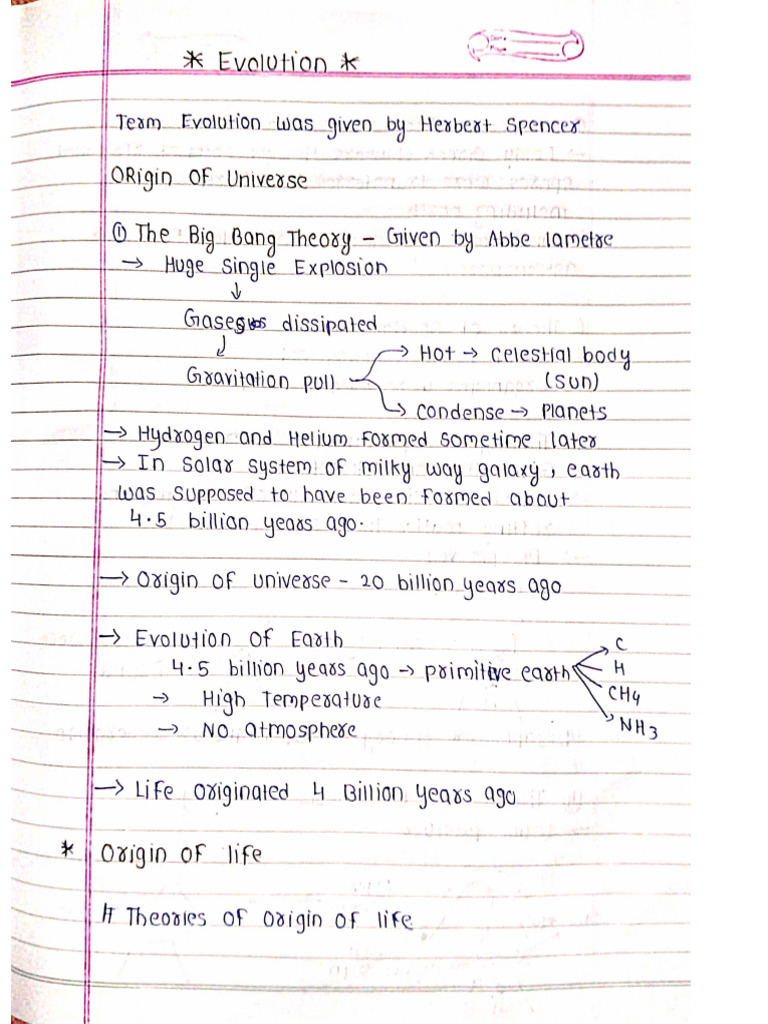 * Evolution *
Term Evolution was given by Herbert Spencer
ORigin OF Universe
① The Big Bang Theory - Given by Abbe lametre
→ Huge Single Explosion
↓
Gaseous dissipated
↓
Gravitation pull → Hot → celestial body
(Sun)
→ condense → Planets
→ Hydrogen and Helium Formed sometime later
→ In Solar System of milky way galaxy, earth
was supposed to have been formed about
4.5 billion years ago.
→ Origin of universe - 20 billion years ago
→ Evolution of Earth
4.5 billion years ago → primitive earth → C
H
CH4
NH3
→ High Temperature
→ NO atmosphere
→ Life originated 4 Billion years ago
* Origin of life
# Theories of Origin of life